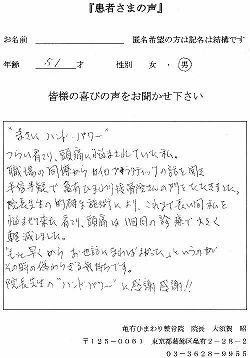 『患者さまの声』
お名前 匿名希望の方は記名は結構です
年齢 51 才 性別 女 ・ 男
皆様の喜びの声をお聞かせ下さい
"まさに ハンドパワー"
つらい肩こり、頭痛に悩まされていた私。
職場の同僚からカイロプラクティックの話を聞き
半信半疑で亀有ひまわり接骨院さんの門をたたきました。
院長先生の的確な施術により、これまで長い間私を
悩ませて来た肩こり、頭痛は1回目の診療で大きく
軽減しました。
もっと早くからお世話になればよかったというのが
その時の偽わらざる気持ちです。
院長先生の"ハンドパワー"に感謝感謝!!
亀有ひまわり整骨院 院長 大須賀 昭
〒125-0061 東京都葛飾区亀有2-28-2
03-3628-9855